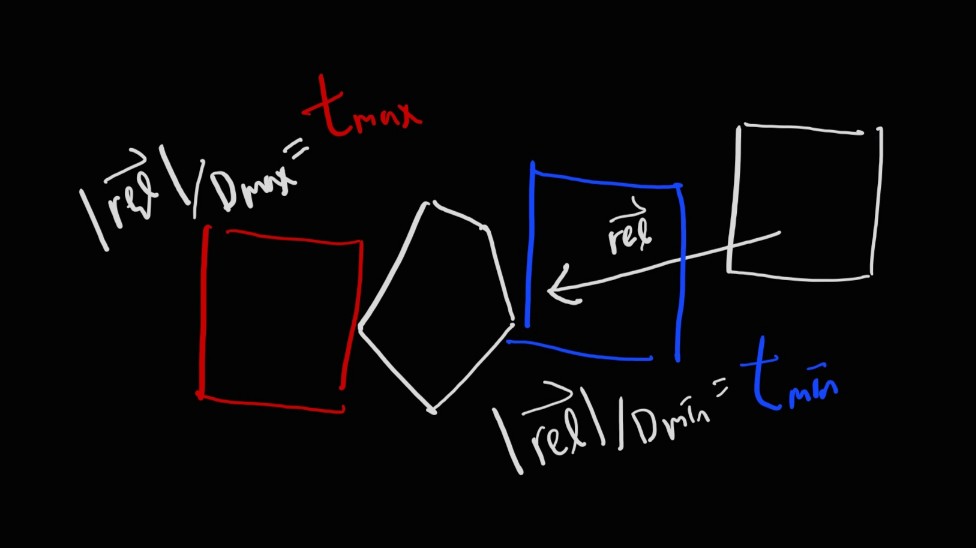 |rel|/Dmax = tmax
rel
|rel|/Dmin = tmin